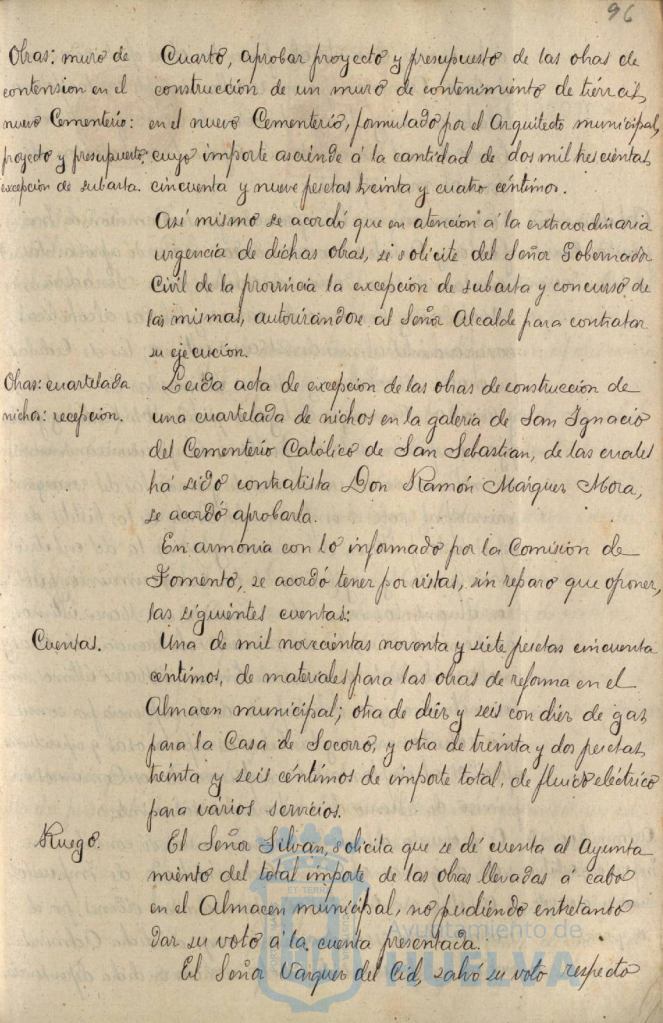 96
Obras: muro de
contension en el
nuevo Cementerio:
proyecto y presupuesto:
excepción de subasta.
Cuarto, aprobar proyecto y presupuesto de las obras de
construcción de un muro de contenimiento de tierras,
en el nuevo Cementerio, formulado por el Arquitecto municipal,
cuyo importe asciende á la cantidad de dos mil trescientas
cincuenta y nueve pesetas treinta y cuatro céntimos.
Así mismo se acordó que en atención á la extraordinaria
urgencia de dichas obras, se solicite del Señor Gobernador
Civil de la provincia la excepción de subasta y concurso de
las mismas, autorizándose al Señor Alcalde para contratar
su ejecución.
Obras: cuartelada
nichos: recepción.
Leida acta de excepción de las obras de construcción de
una cuartelada de nichos en la galería de San Ignacio
del Cementerio Católico de San Sebastian, de las cuales
há sido contratista Don Ramón Márquez Mora,
se acordó aprobarla.
En armonía con lo informado por la Comisión de
Fomento, se acordó tener por vistas, sin reparo que oponer,
las siguientes cuentas:
Cuentas.
Una de mil novecientas noventa y siete pesetas cincuenta
céntimos, de materiales para las obras de reforma en el
Almacen municipal; otra de diéz y seis con diéz de gas
para la Casa de Socorro, y otra de treinta y dos pesetas
treinta y seis céntimos de importe total, de fluido eléctrico
para varios servicios.
Ruego.
El Señor Silvan, solicita que se dé cuenta al Ayunta
miento del total importe de las obras llevadas á cabo
en el Almacen municipal, no pudiendo entretanto
dar su voto á la cuenta presentada.
El Señor Vázquez del Cid, salvó su voto respecto
Ayuntamiento de
HUELVA